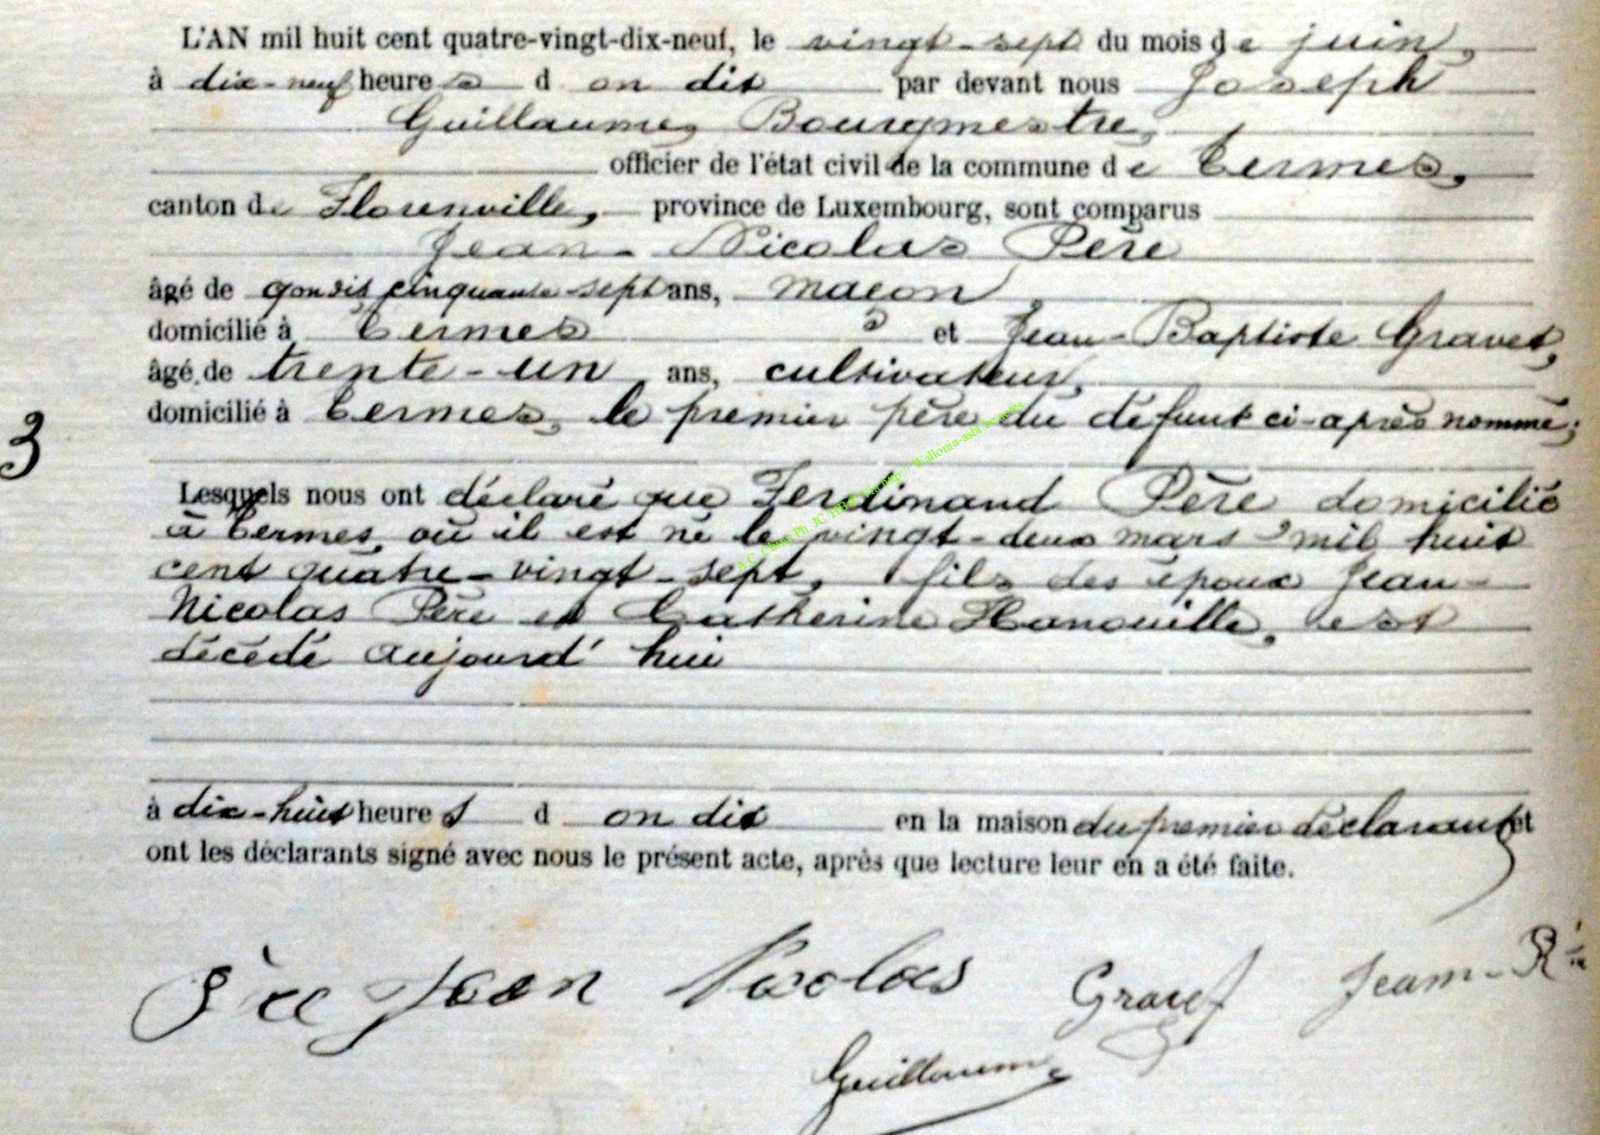 L'AN mil huit cent quatre-vingt-dix-neuf, le vingt-sept du mois de juin,
à dix-neuf heures d on dit par devant nous Joseph
Guillaume, Bourgmestre,
officier de l'état civil de la commune de Termes,
canton de Florenville, province de Luxembourg, sont comparus
Jean-Nicolas Père
âgé de cinquante-sept ans, maçon
domicilié à Termes, et Jean-Baptiste Gravet,
âgé de trente-un ans, cultivateur,
domicilié à Termes, le premier père du défunt ci-après nommé;
3
Lesquels nous ont déclaré que Ferdinand Père domicilié
à Termes, où il est né le vingt-deux mars mil huit
cent quatre-vingt-sept, fils des époux Jean-
Nicolas Père et Catherine Hanouille, est
décédé aujourd'hui
à dix-huit heures d on dit en la maison du premier déclarant et
ont les déclarants signé avec nous le présent acte, après que lecture leur en a été faite.
Père Jean Nicolas Gravet Jean-Bte
Guillaume